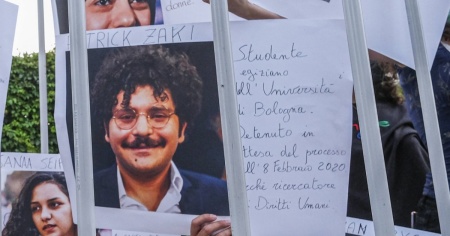 donne
TRICK ZAKI
Studente
egiziano
ell'Università
di Bologna.
Detenuto in
ttesa del processo
ll'8 Febbraio 2020
rché ricercatore
i Diritti Umani
SANAA SEI
TAN S